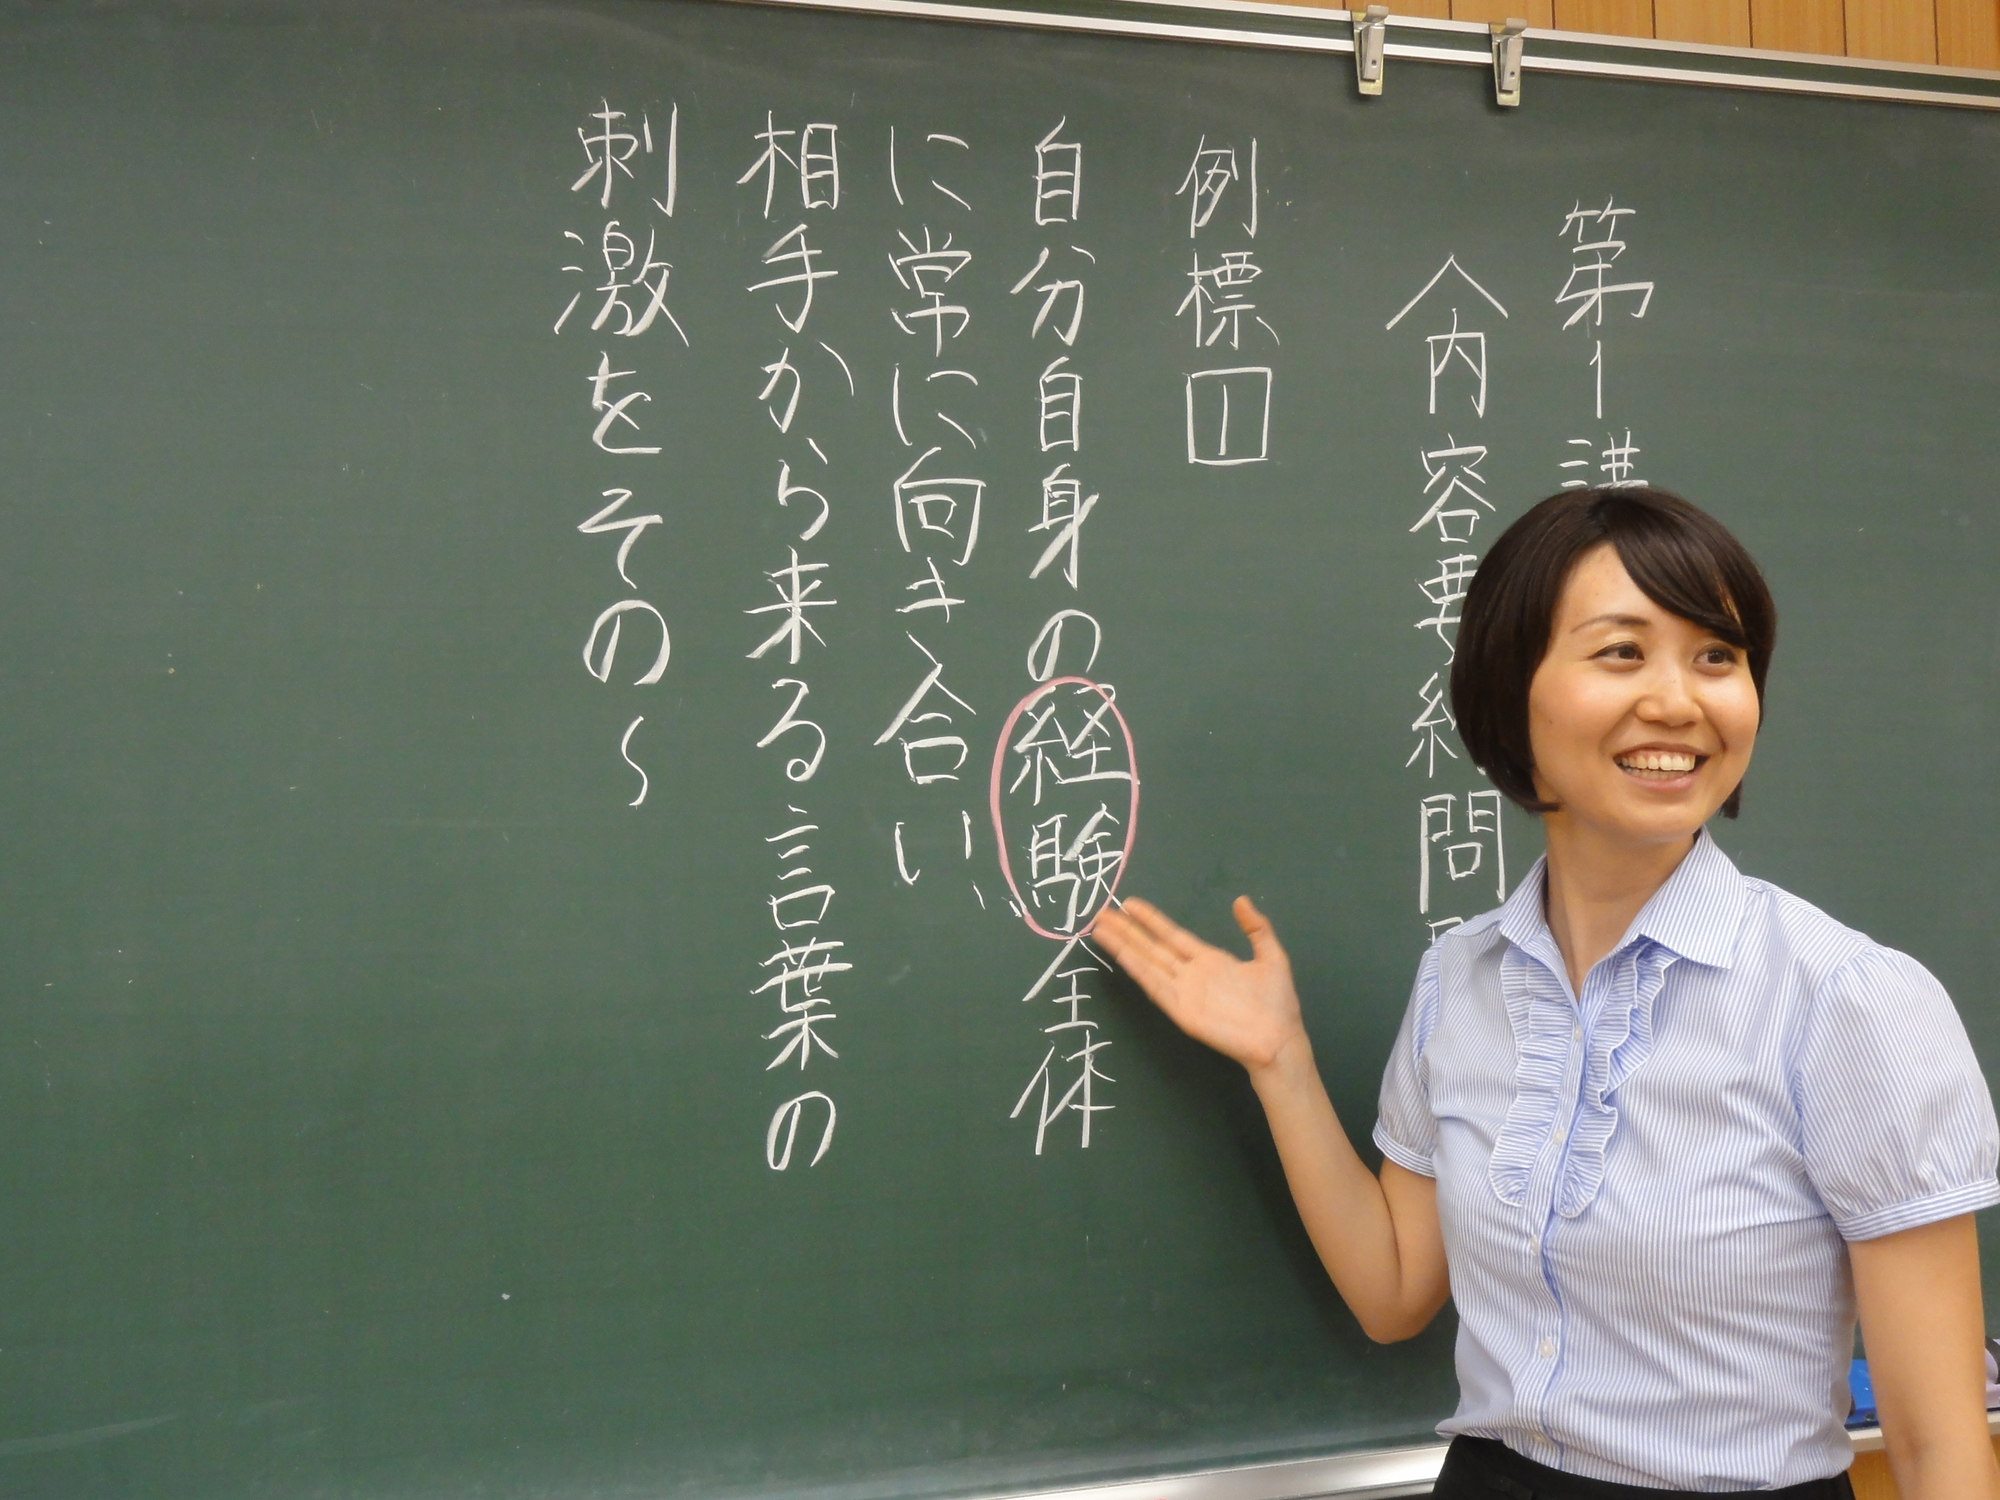 第1講
〈内容要約問
例標1
自分自身の経験全体
に常に向き合い、
相手から来る言葉の
刺激をその〜